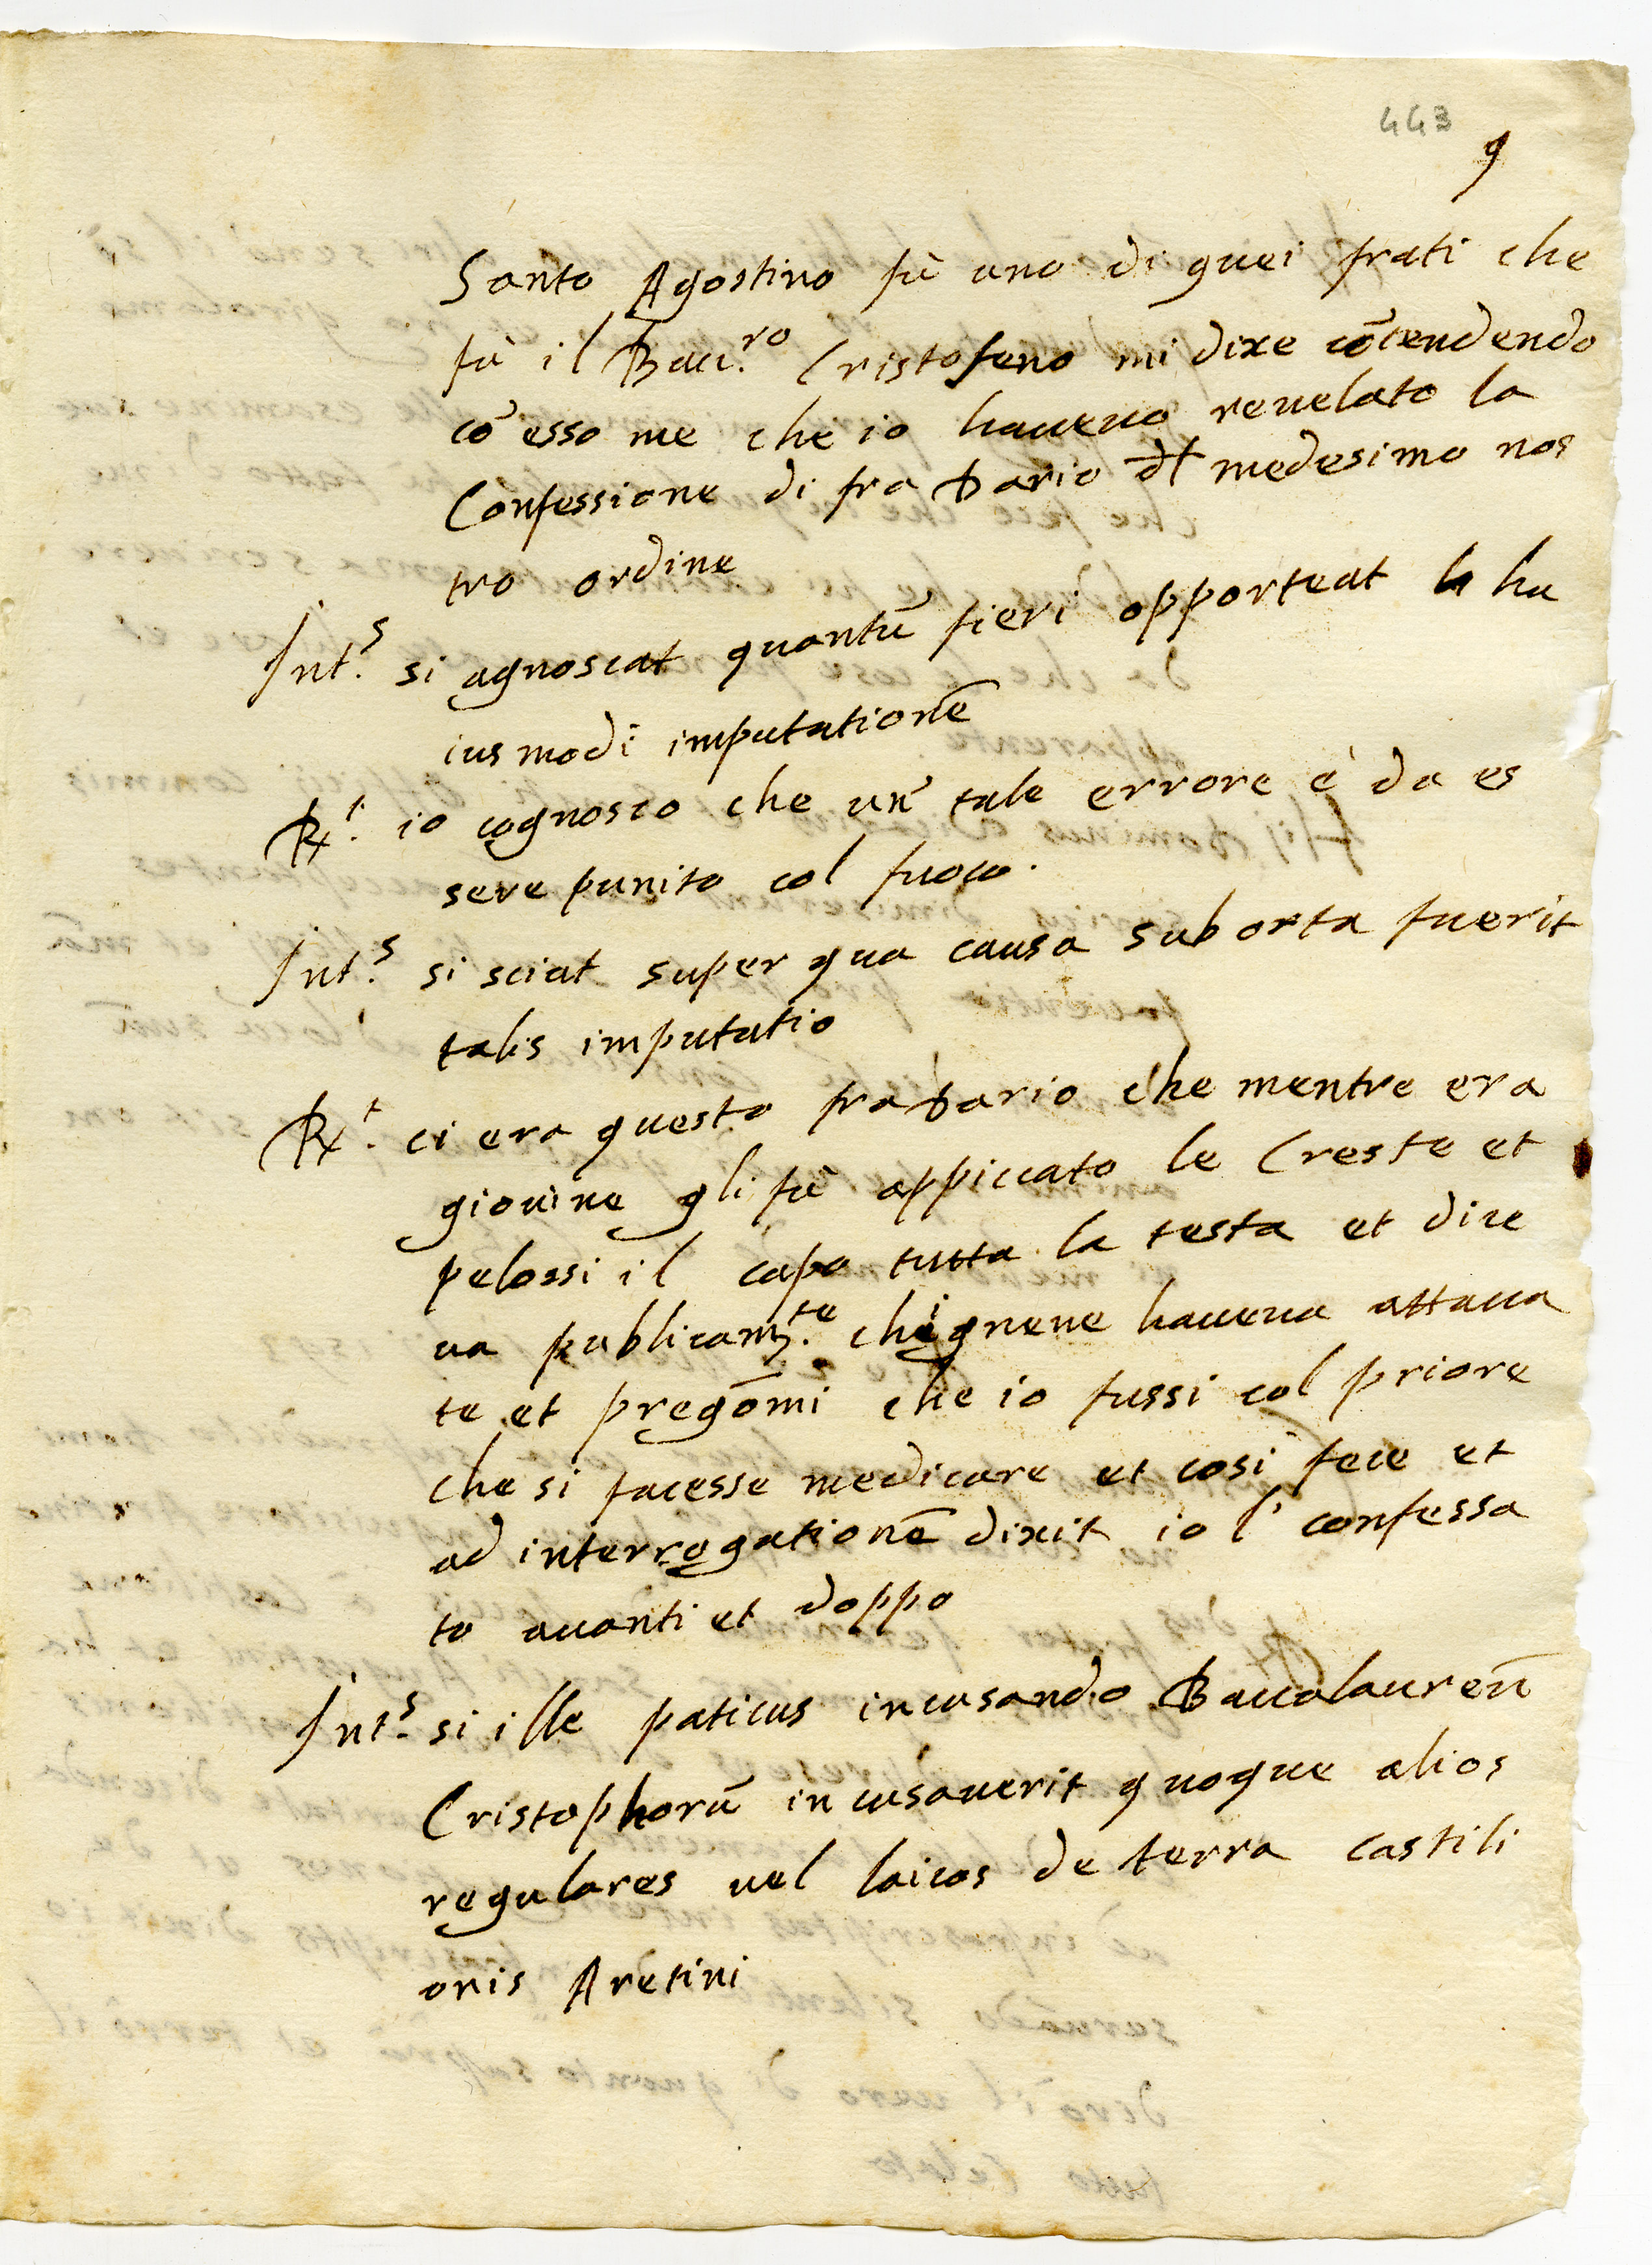 443
9
Santo Agostino fù uno di quei frati che
fù il Bacc.ro Cristofeno mi dixe cōtendendo
cō esso me che io haueuo reuelato la
Confessione di fra Dario dl medesimo nos
tro ordine
Int.s si agnoscat quantū fieri opporteat hu
iusmodi imputationē
Rx.t io cognosco che un tale errore è da es
sere punito col fuoco.
Int.s si sciat super qua causa suborta fuerit
talis imputatio
Rx.t ci era questo fra Dario che mentre era
giouine gli fù appiccato le Creste et
pelossi il capo tutta la testa et dice
ua publicam.te chi gnene haueua attacca
te et pregōmi che io fussi col priore
che si facesse medicare et cosi fece et
ad interrogationē dixit io l' confessa
to auanti et doppo
Int.s si ille paticus incusando Baccalaureū
Cristophorū incusauerit quoque alios
regulares uel laicos de terra castili
onis Aretini